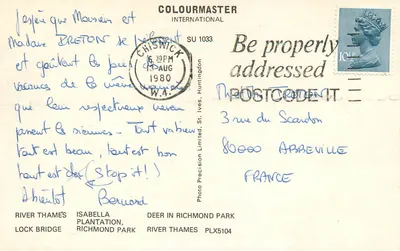 COLOURMASTER
INTERNATIONAL
SU 1033
J'espère que Monsieur et
Madame BRETON se
et goûtent les joies
vacances de la même manière
que leur respectueux neveu
passent les siennes. Tout va bien
tout est beau, tout est bon
tout est doz (Stop it!)
A bientôt Bernard
CHISWICK
6.30PM
AUG
1980
W.4.
Be properly
addressed
POSTCODE IT
10
3 rue du Scardon
80000 ABBEVILLE
FRANCE
Photo Precision Limited, St. Ives, Huntingdon
RIVER THAMES ISABELLA PLANTATION, DEER IN RICHMOND PARK
LOCK BRIDGE RICHMOND PARK RIVER THAMES PLX5104